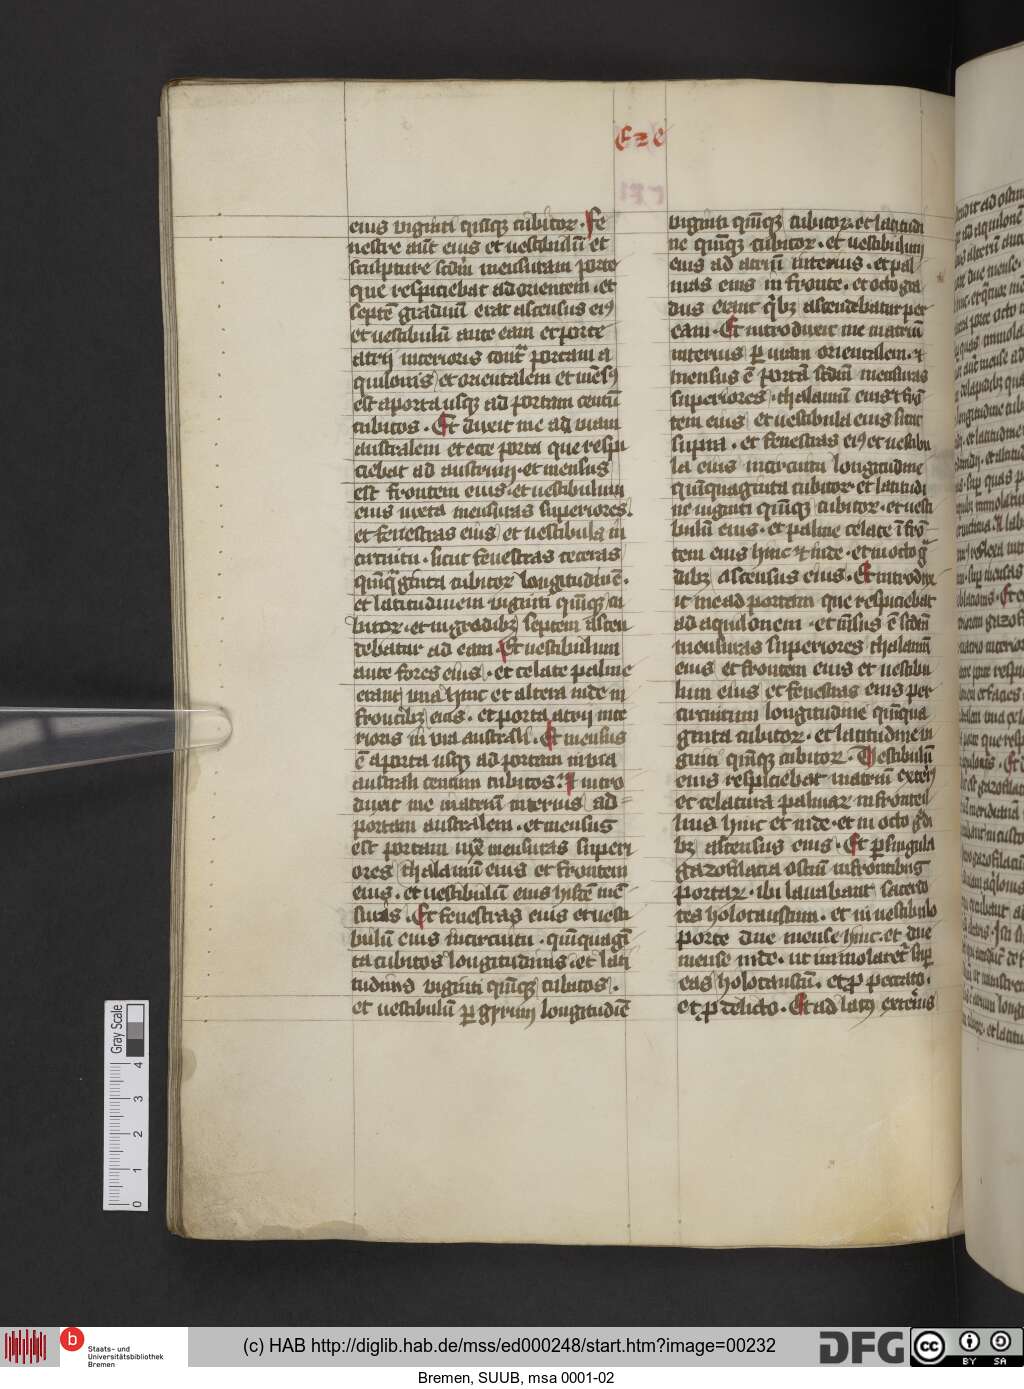 Eze
eius viginti quīqꝫ cubitoꝝ · Fe
nestre aūt eius et vestibulū et
sculpture scdm̄ mensuram porte
que respiciebat ad orientem · et
septē graduū erat ascensus eiꝰ
et vestibulū ante eam et porte
atrij interioris contᵃ portam a
quilonis et orientalem et mēsꝰ
est a porta usqꝫ ad portam centū
cubitos · Et duxit me ad viam
australem et ecce porta que respi
ciebat ad austrum · et mensus
est frontem eius · et vestibulum
eius iuxta mensuras superiores ·
et fenestras eius et vestibula in
circuitu · sicut fenestras ceteras
quīqᵃginta cubitoꝝ longitudinē ·
et latitudinem viginti quīqꝫ cu
bitoꝝ · et in gradibꝫ septem ascen
debatur ad eam · Et vestibulum
ante fores eius · et celate palme
erant una hinc et altera inde in
frontibꝫ eius · et porta atrij inte
rioris in via australi · Et mensus
ē a porta usqꝫ ad portam in via
australi centum cubitos · Et intro
duxit me in atriū interius ad
portam australem · et mensus
est portam iuxᵃ mensuras superi
ores thalamū eius et frontem
eius · et vestibulū eius hisdē mē
suris · Et fenestras eius et vesti
bulū eius in circuitu · quīquagī
ta cubitos longitudinis · et lati
tudinis viginti quīqꝫ cubitos ·
et vestibulū ꝑ gyrum longitudīe
viginti quīqꝫ cubitoꝝ · et latitudi
ne quīqꝫ cubitoꝝ · et vestibulum
eius ad atriū interius · et pal
mas eius in fronte · et octo gra
dus erant qͥbꝫ ascendebatur per
eam · Et introduxit me in atriū
interius ꝑ viam orientalem · ⁊
mensus ē portā scdm̄ mensuras
superiores · thalamū eius ⁊ frō
tem eius et vestibula eius sicut
supra · et fenestras eiꝰ et vestibu
la eius in circuitu longitudine
quīquaginta cubitoꝝ · et latitudi
ne viginti quīqꝫ cubitoꝝ · et vesti
bulū eius · et palme celate ī frō
tem eius hinc ⁊ inde · et in octo gᵃ
dibꝫ ascensus eius · Et introdux
it me ad portam que respiciebat
ad aquilonem · et mēsus ē scdm̄
mensuras superiores thalamū
eius et frontem eius et vestibu
lum eius et fenestras eius per
circuitum longitudine quīqua
ginta cubitoꝝ · et latitudine vi
ginti quīqꝫ cubitoꝝ · Vestibulū
eius respiciebat in atriū exteriꝰ
et celatura palmaꝝ in fronte il
lius hinc et inde · et in octo gᵃdi
bꝫ ascensus eius · Et ꝑ singula
gazofilacia ostiū in frontibus
portaꝝ · ibi lavabant sacerdo
tes holocaustum · et in vestibulo
porte due mense hinc · et due
mense inde · ut immolaretᷣ suꝑ
eas holocaustū · et ꝓ peccato ·
et ꝓ delicto · Et ad latꝰ exterius
Gray Scale
4
3
2
1
0
b
Staats- und
Universitätsbibliothek
Bremen
(c) HAB http://diglib.hab.de/mss/ed000248/start.htm?image=00232
DFG
cc
BY SA
Bremen, SUUB, msa 0001-02